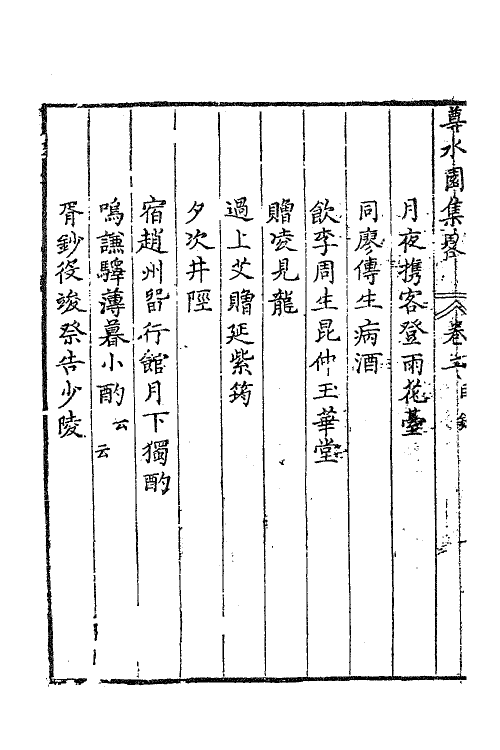 尊水園集畧 卷二 目錄
月夜携客登雨花臺
同廖傳生病酒
飲李周生昆仲玉華堂
贈凌見龍
過上艾贈延紫筠
夕次井陘
宿趙州署行館月下獨酌
鳴謙驛薄暮小酌云云
胥鈔役竣祭告少陵